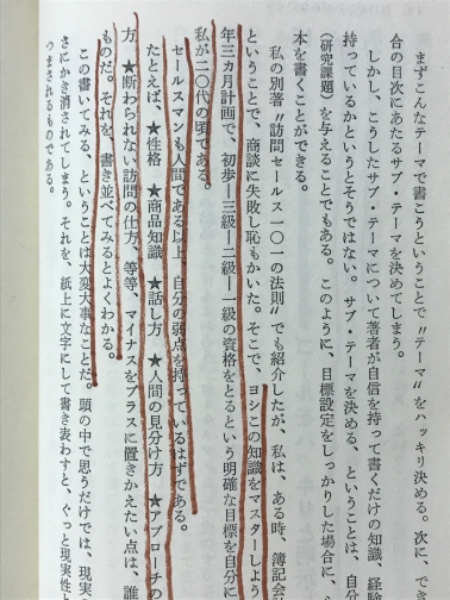 まずこんなテーマで書こうということで〝テーマ〟をハッキリ決める。次に、でき
合の目次にあたるサブ・テーマを決めてしまう。
しかし、こうしたサブ・テーマについて著者が自信を持って書くだけの知識、経験
持っているかというとそうではない。サブ・テーマを決める、ということは、自分
(研究課題)を与えることでもある。このように、目標設定をしっかりした場合に、
本を書くことができる。
私の別著〝訪問セールス一〇一の法則〟でも紹介したが、私は、ある時、簿記会計
ということで、商談に失敗し恥もかいた。そこで、ヨシこの知識をマスターしよう
年三カ月計画で、初歩―三級―二級―一級の資格をとるという明確な目標を自分に
私が二〇代の頃である。
セールスマンも人間である以上、自分の弱点を持っているはずである。
たとえば、★性格 ★商品知識 ★話し方 ★人間の見分け方 ★アプローチの
方、★断わられない訪問の仕方、等等、マイナスをプラスに置きかえたい点は、誰
ものだ。それを、書き並べてみるとよくわかる。
この書いてみる、ということは大変大事なことだ。頭の中で思うだけでは、現実の
さにかき消されてしまう。それを、紙上に文字にして書き表わすと、ぐっと現実性と
つまされるものである。